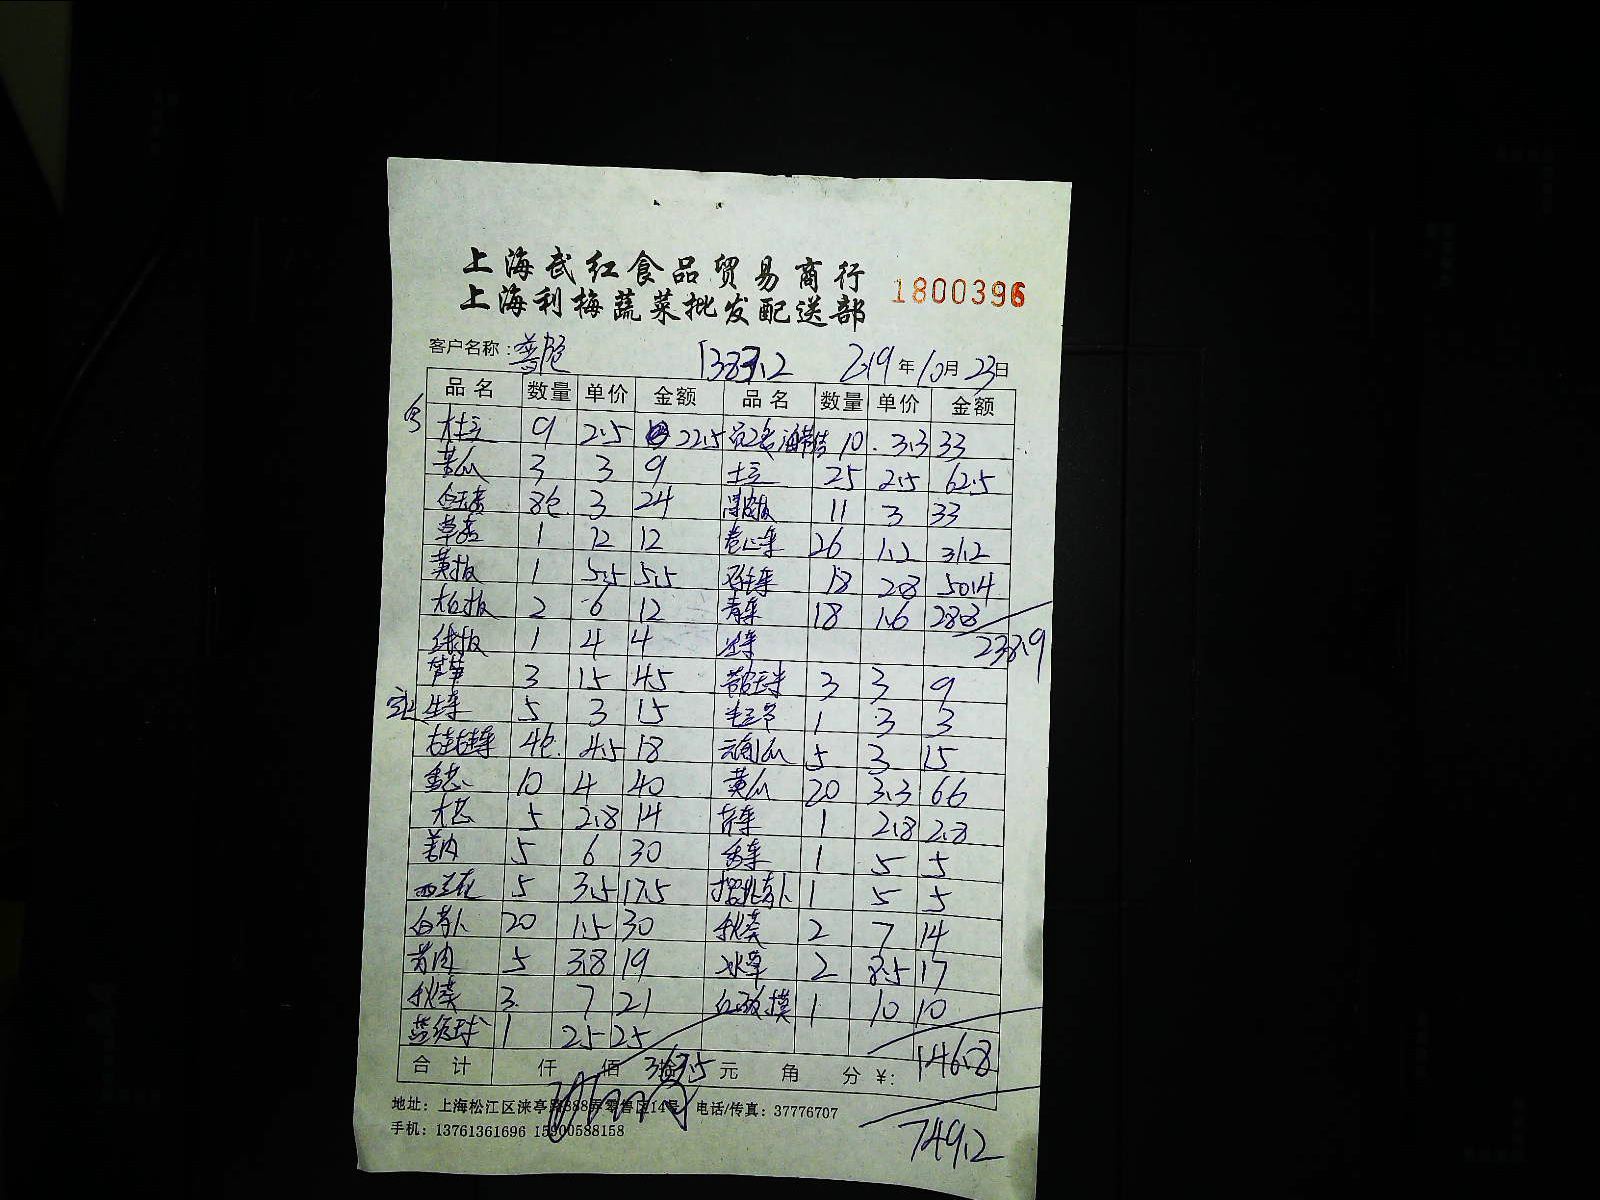 上海武红食品贸易商行
上海利梅蔬菜批发配送部
1800396
客户名称： 1383.2 2019年10月23日
品名 数量 单价 金额 品名 数量 单价 金额
土豆 9 2.5 22.5 海带结 10 3.3 33
黄瓜 3 3 9 土豆 25 2.5 62.5
8包 3 24 11 3 33
草菇 1 12 12 卷心菜 26 1.2 31.2
黄椒 1 5.5 5.5 18 2.8 50.4
大红椒 2 6 12 青菜 18 1.6 28.8
线椒 1 4 4 生菜 238.9
芦笋 3 15 45 3 3 9
生菜 5 3 15 1 3 3
4包 4.5 18 5 3 15
10 4 40 黄瓜 20 3.3 66
大芯 5 2.8 14 1 2.8 2.8
姜肉 5 6 30 1 5 5
西兰花 5 3.5 17.5 1 5 5
白萝卜 20 1.5 30 秋葵 2 7 14
5 3.8 19 冰草 2 8.5 17
秋葵 3 7 21 1 10 10
1 25 25
合计 仟 佰 拾 363.5 元 角 分 ¥: 146.8
地址：上海松江区涞亭路888弄零售区14号 电话/传真：37776707
手机：13761361696 15900588158
749.2